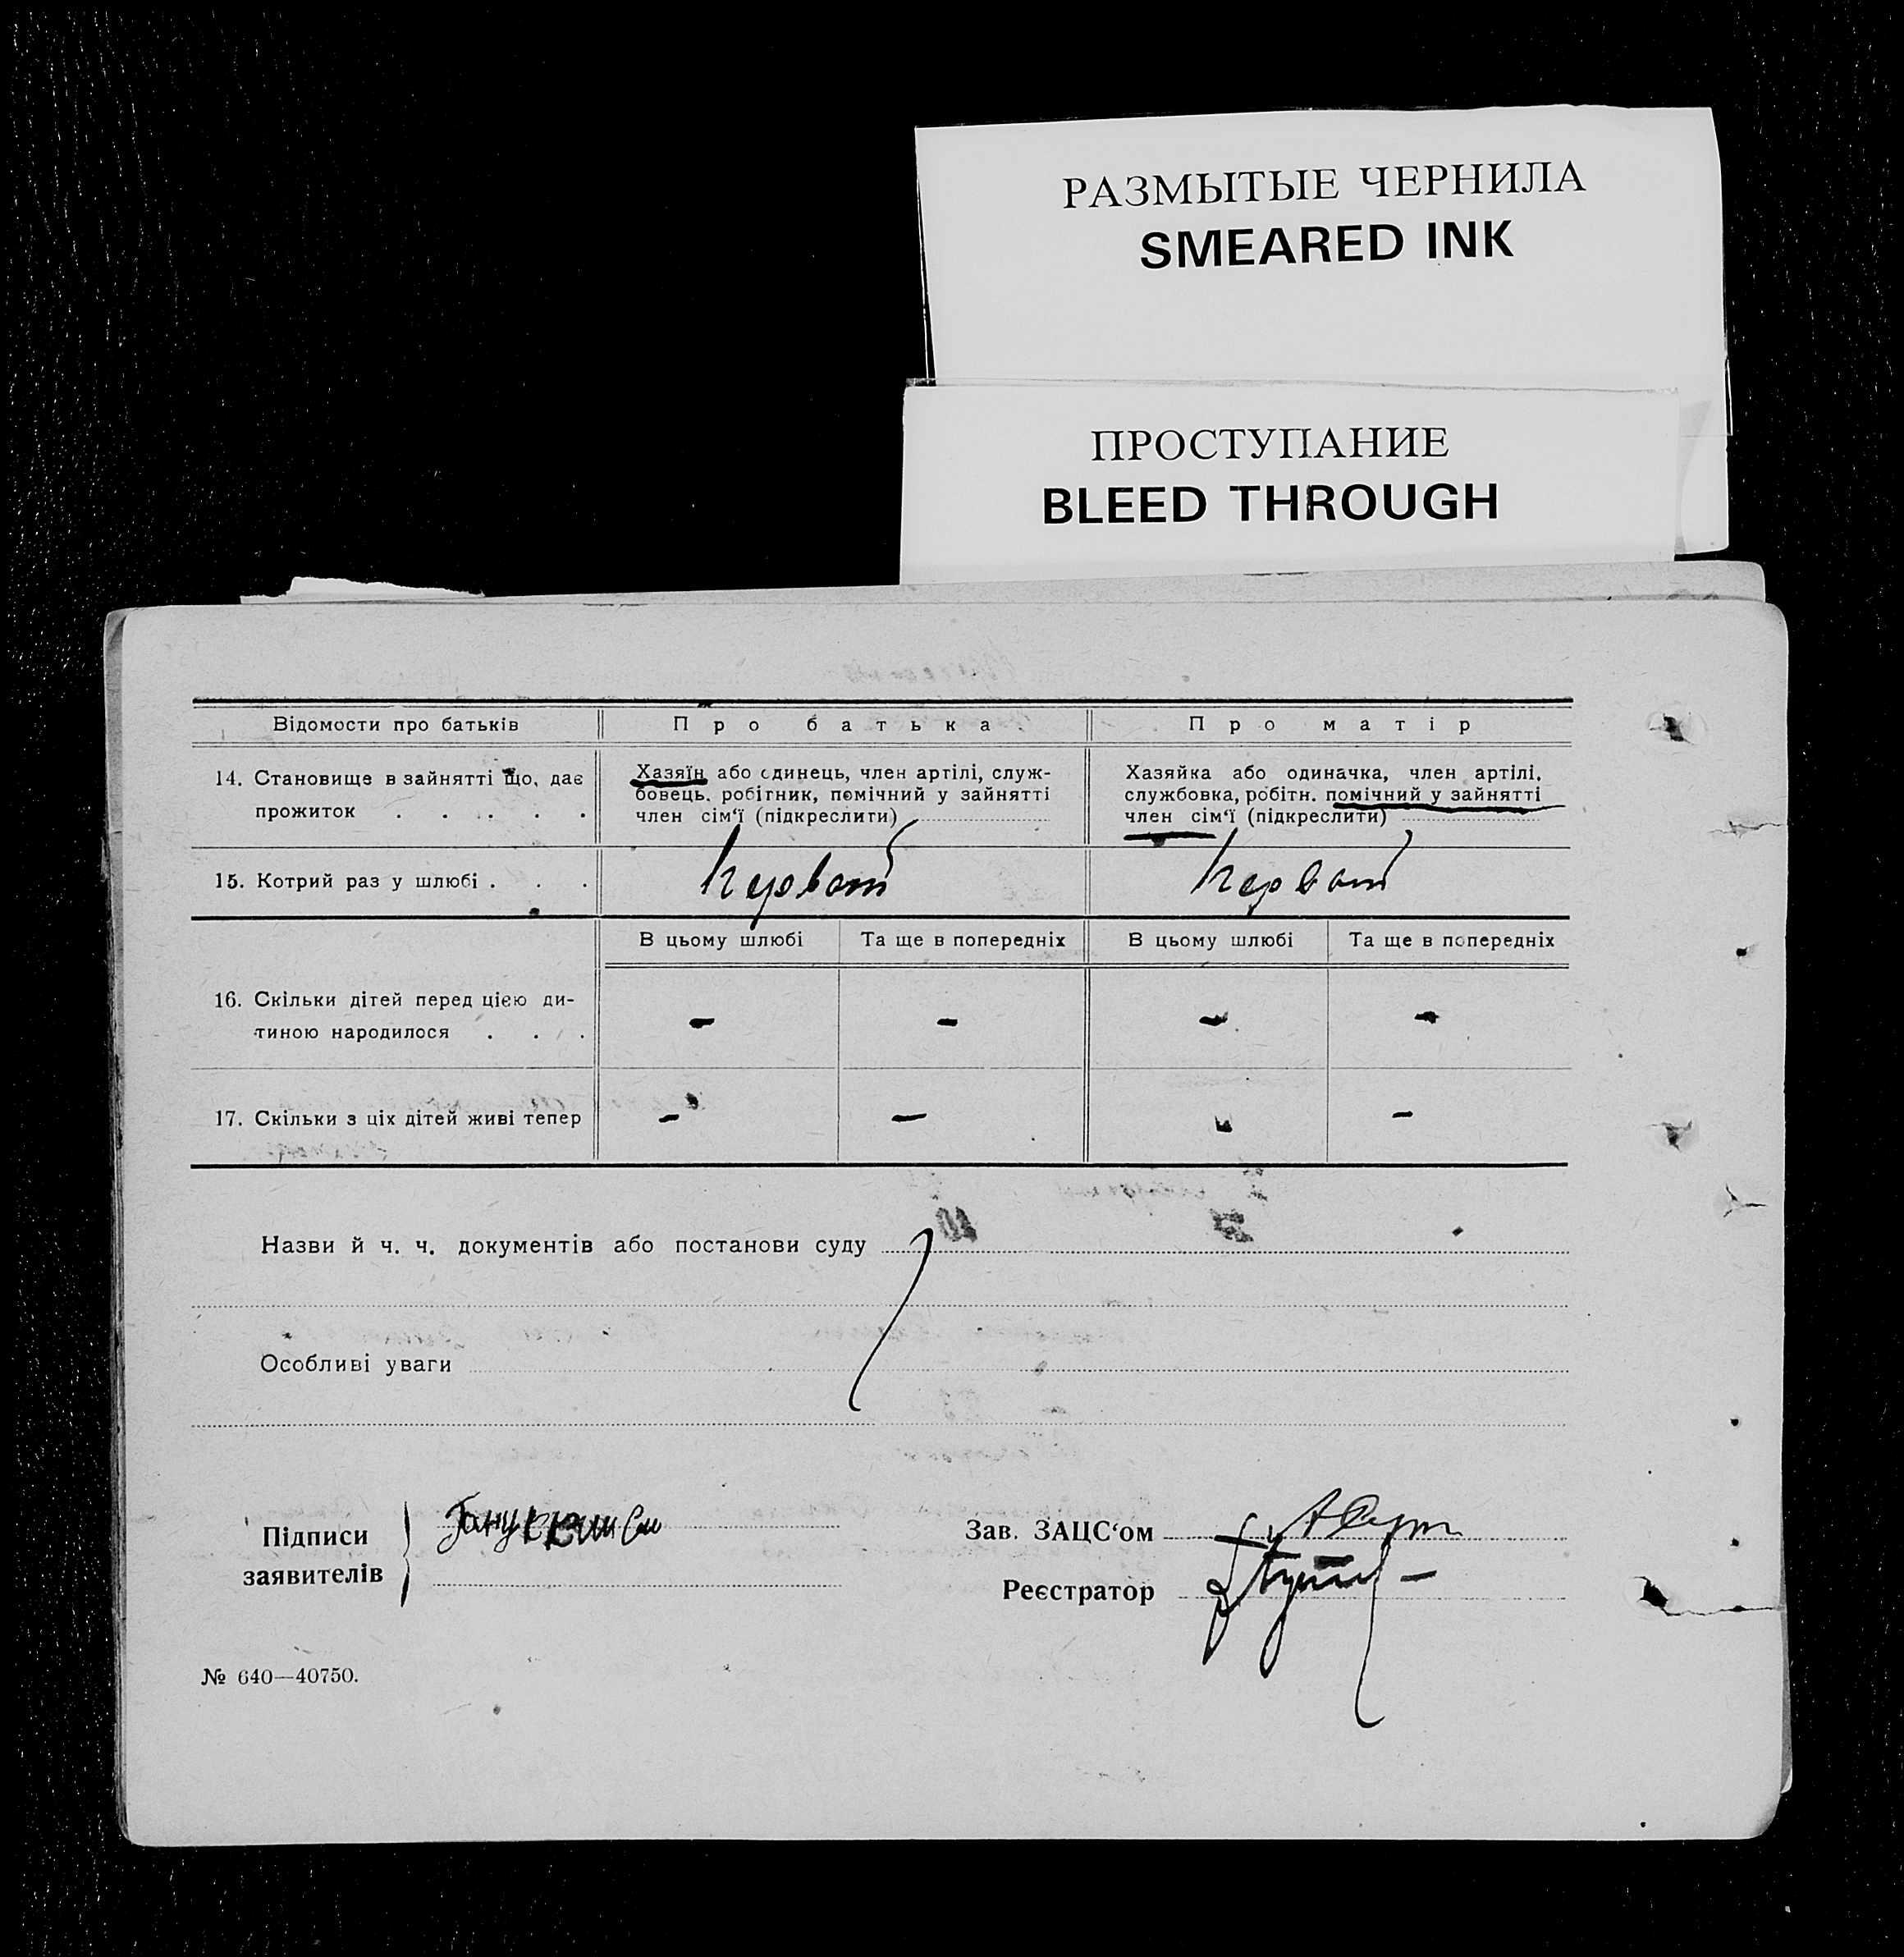 РАЗМЫТЫЕ ЧЕРНИЛА
SMEARED INK
ПРОСТУПАНИЕ
BLEED THROUGH
Відомости про батьків
Про батька
Про матір
14. Становище в зайнятті що, дає
прожиток . . . . .
Хазяїн або єдинець, член артілі, служ-
бовець, робітник, помічний у зайнятті
член сім‘ї (підкреслити)
Хазяйка або одиначка, член артілі,
службовка, робітн. помічний у зайнятті
член сім‘ї (підкреслити)
15. Котрий раз у шлюбі . . .
Первый
Первый
В цьому шлюбі
Та ще в попередніх
В цьому шлюбі
Та ще в попередніх
16. Скільки дітей перед цією ди-
тиною народилося . . .
–
–
–
–
17. Скільки з ціх дітей живі тепер
–
–
–
Назви й ч. ч. документів або постанови суду
Особливі уваги
Підписи
заявителів
Зав. ЗАЦС‘ом
Реєстратор
№ 640—40750.